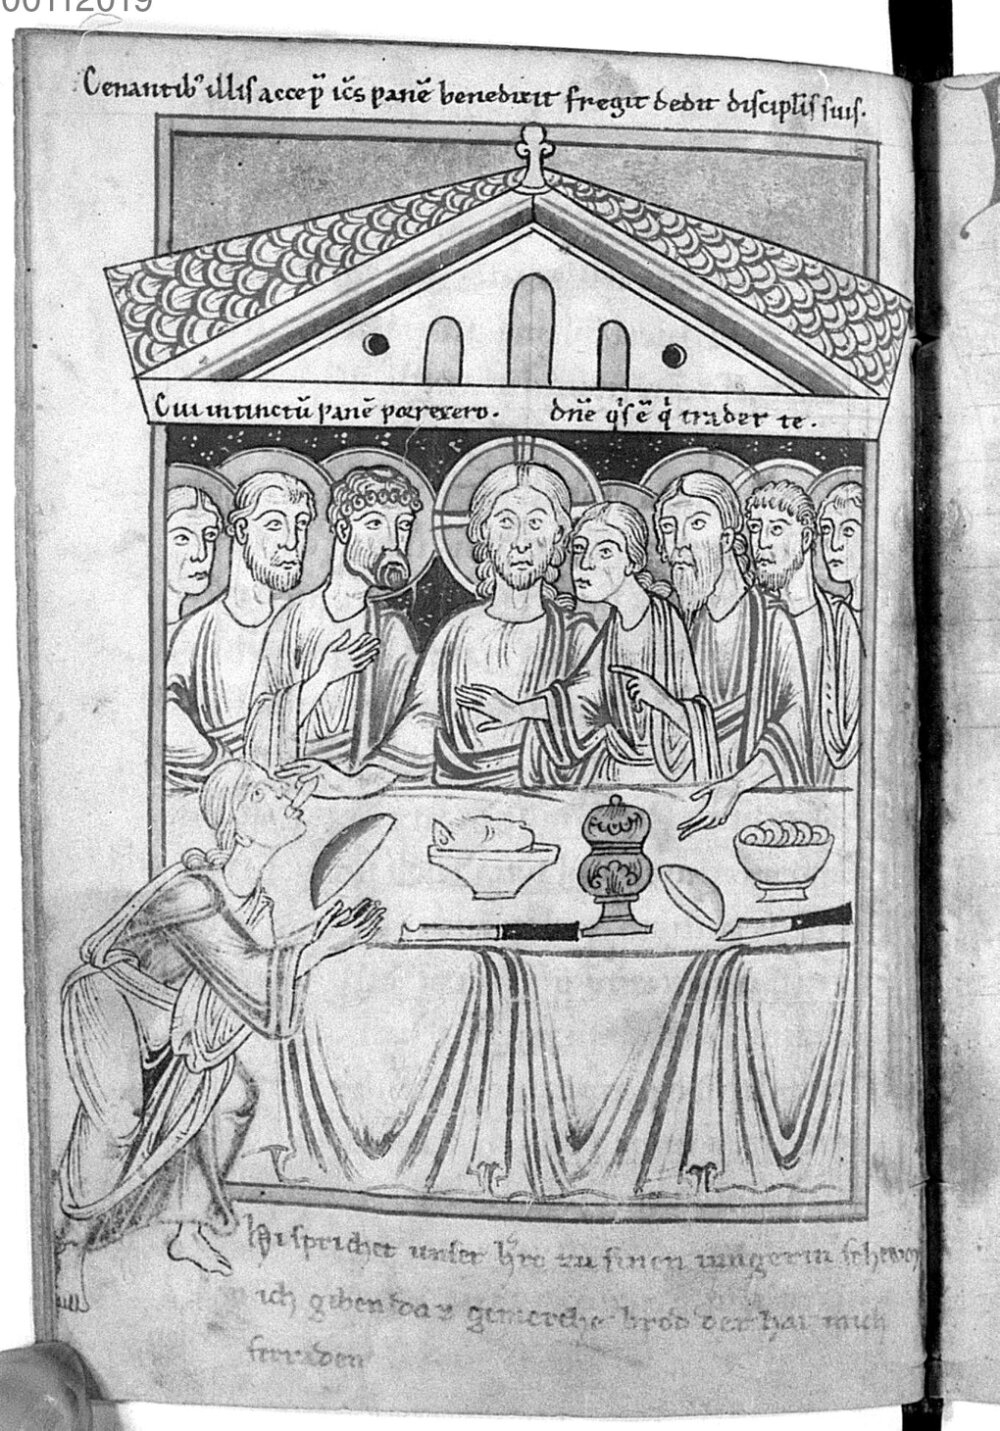 00112019
Cenantib' illis accep̄ ic̄s panē benedixit fregit dedit discipl̄is suis.
Cui intinctū panē porrexero. dn̄e q's ē q' trader te.
Hi sprichet unser h're zu sinen iungerin
ich giben daz gemerche brod der hat mich
firraden